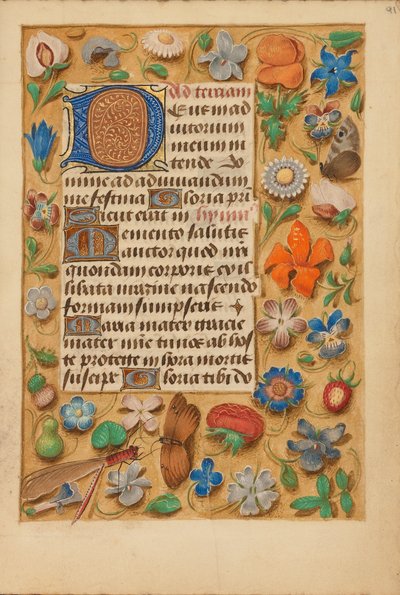 91
Ad terciam
Deus in ad
iutorium
meum in
tende Do
mine ad adiuuandum
me festina Gloria patri
Sicut erat in hymnus
Memento salutis
auctor quod nri
quondam corporis ex il
libata uirgine nascendo
formam sumpseris +
Maria mater gracie
mater mie tu nos ab hos
te protege in hora mortis
suscipe Gloria tibi do